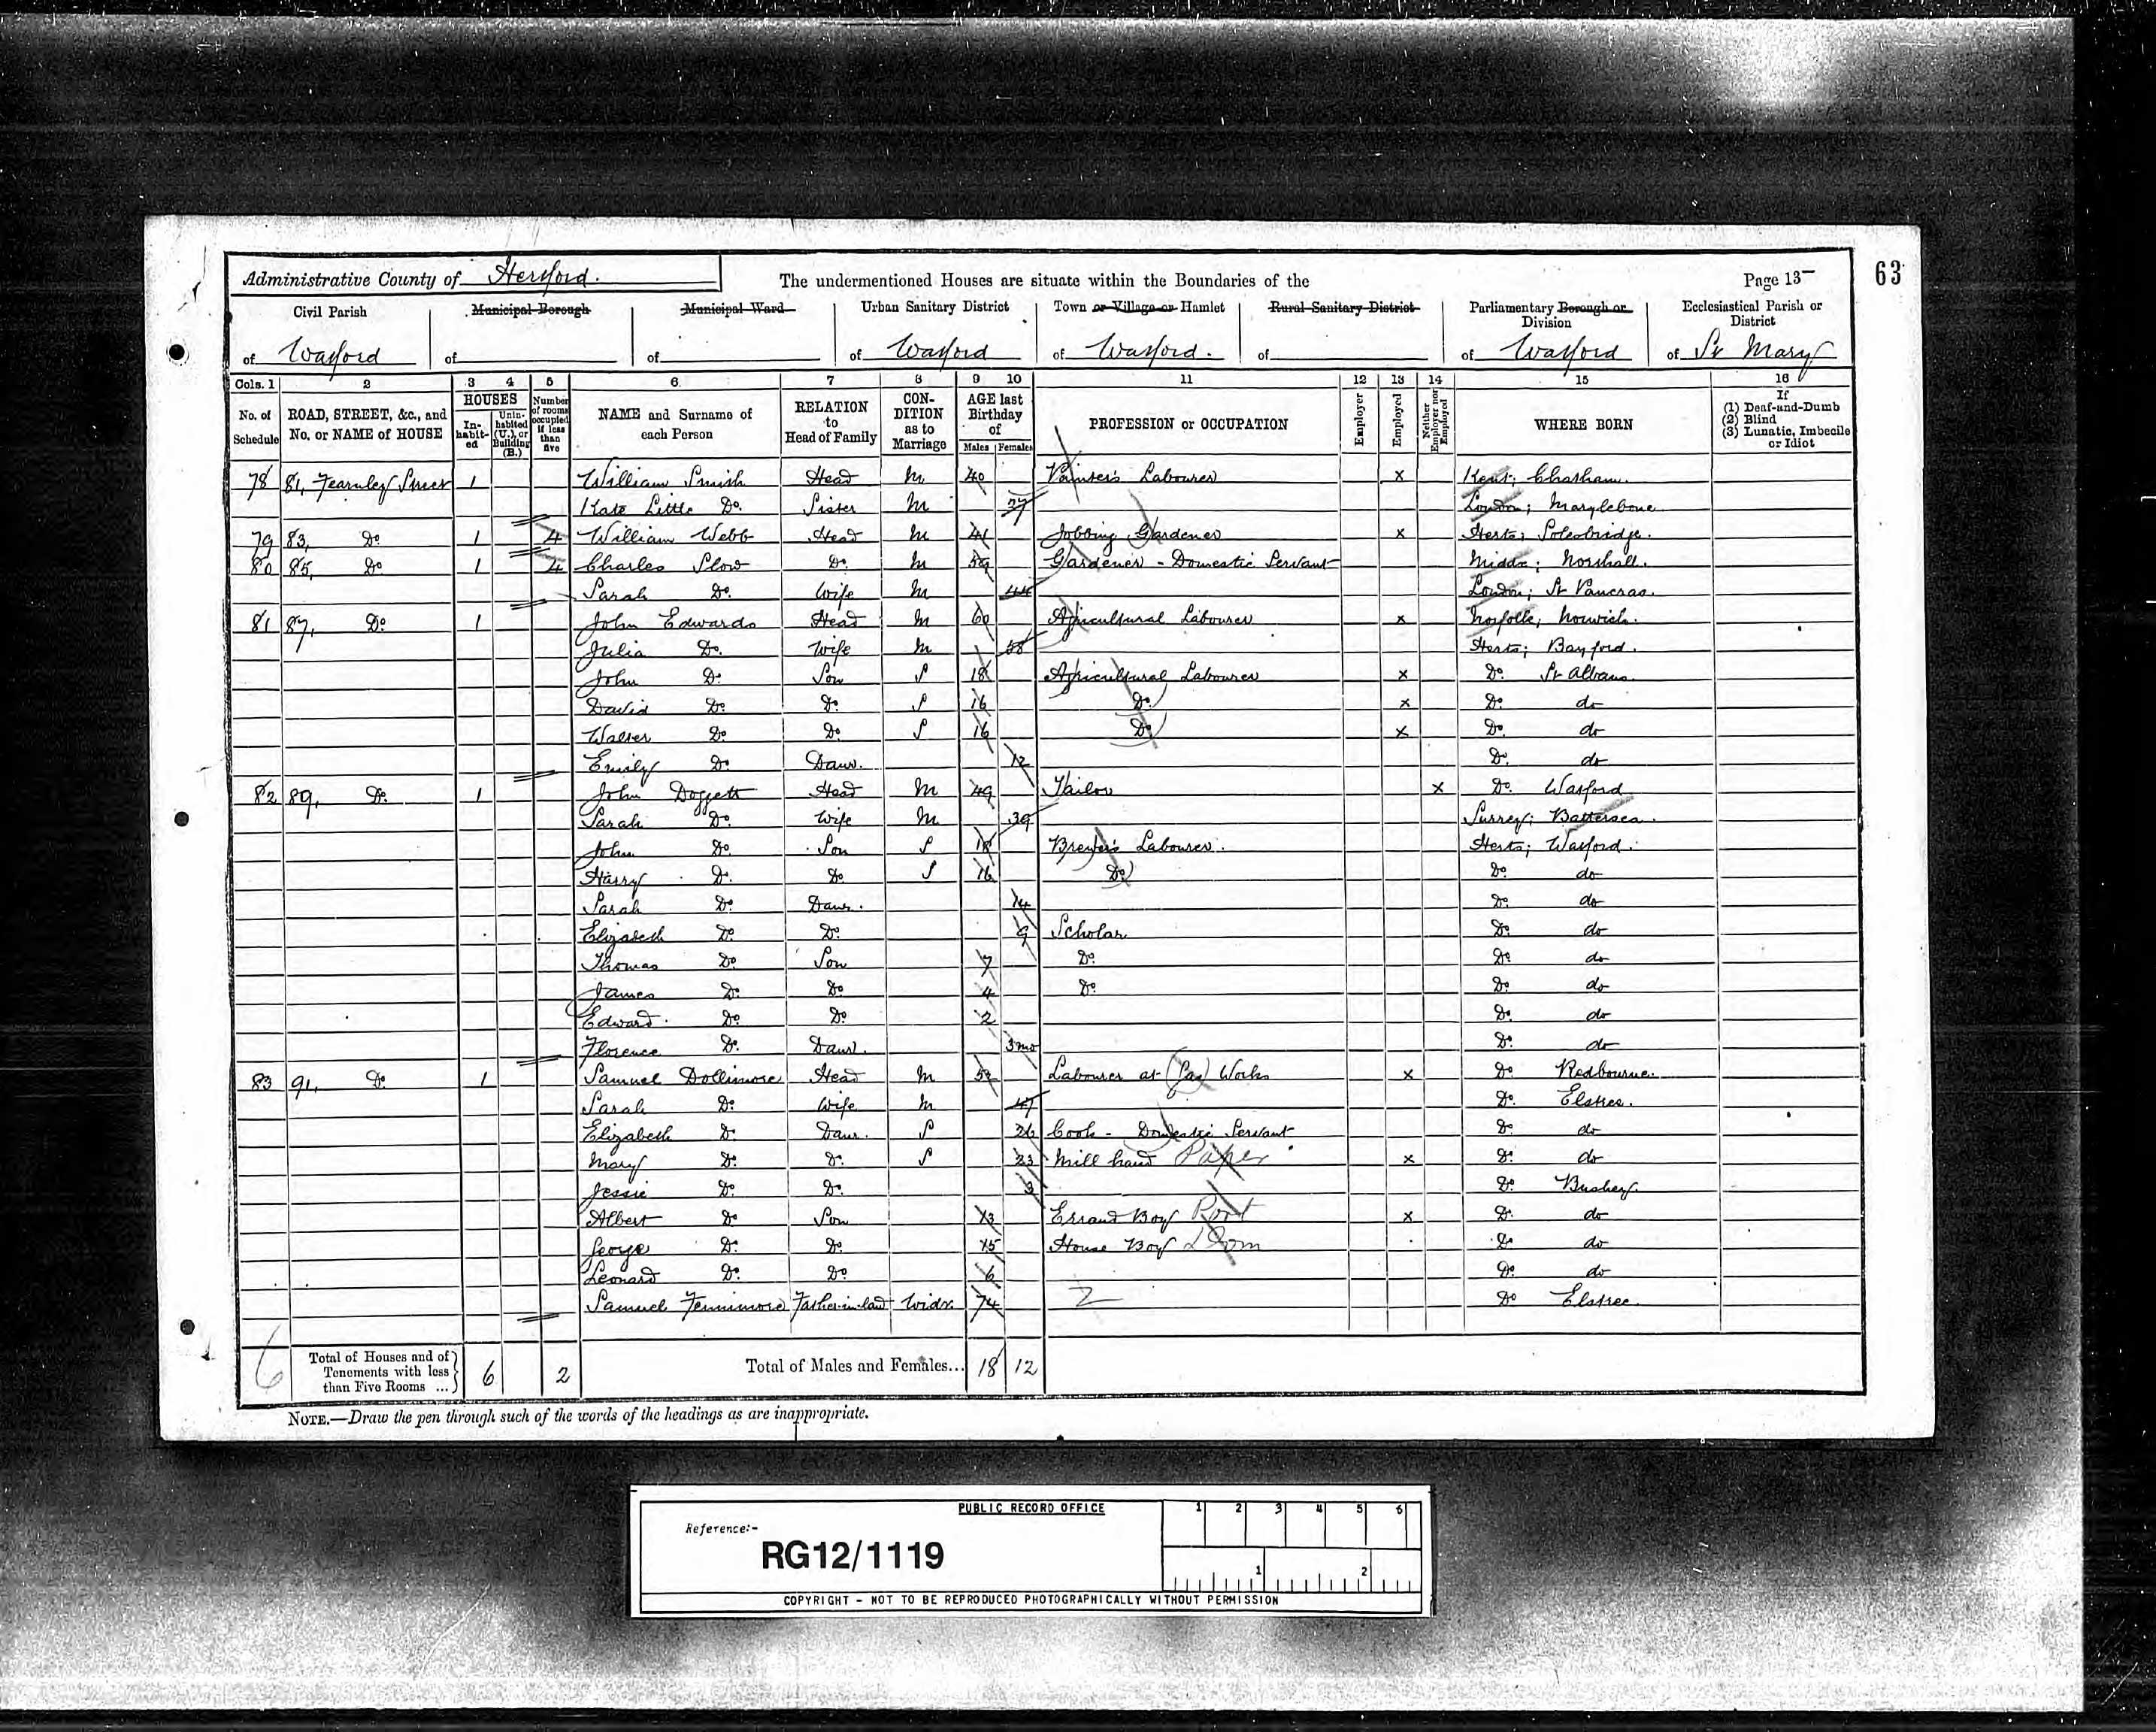 Administrative County of Hertford. The undermentioned Houses are situate within the Boundaries of the Page 13 63
Civil Parish Municipal Borough Municipal Ward Urban Sanitary District Town or Village or Hamlet Rural Sanitary District Parliamentary Borough or Division Ecclesiastical Parish or District
of Watford of of of Watford of Watford. of of Watford of St Mary
Cols. 1 2 3 4 5 6 7 8 9 10 11 12 13 14 15 16
No. of Schedule ROAD, STREET, &c., and No. or NAME of HOUSE HOUSES In-habit-ed Unin-habited (U.), or Building (B.) Number of rooms occupied if less than five NAME and Surname of each Person RELATION to Head of Family CON-DITION as to Marriage AGE last Birthday of Males Females PROFESSION or OCCUPATION Employer Employed Neither Employer nor Employed WHERE BORN If (1) Deaf-and-Dumb (2) Blind (3) Lunatic, Imbecile or Idiot
78 81, Fearnley Street 1 William Smith Head M 40 Painter's Labourer x Kent; Chatham.
Kate Little Do. Sister M 37 London; Marylebone
79 83, Do 1 4 William Webb Head M 41 Jobbing Gardener x Herts;
80 85, Do 1 4 Charles Slow Do. M 59 Gardener - Domestic Servant Middx;
Sarah Do. Wife M 44 London; St Pancras.
81 87, Do 1 John Edwards Head M 60 Agricultural Labourer x Norfolk; Norwich.
Julia Do. Wife M 58 Herts; Bayford.
John Do. Son S 18 Agricultural Labourer x Do. St Albans
David Do. Do. S 16 Do. x Do. do
Walter Do. Do S 16 Do. x Do. do
Emily Do Daur. 12 Do. do
82 89, Do. 1 John Doggett Head M 49 Tailor x Do. Watford
Sarah Do. Wife M 39 Surrey; Battersea.
John Do. Son S 18 Brewer's Labourer. Herts; Watford.
Harry Do. Do S 16 Do. Do. do
Sarah Do. Daur. 14 Do. do
Elizabeth Do. Do. 9 Scholar Do. do
Thomas Do Son 7 Do. Do do
James Do. Do. 4 Do. Do. do
Edward. Do. Do. 2 Do. do
Florence Do. Daur. 3 mo Do. do
83 91, Do 1 Samuel Dollimore Head M Labourer at Gas Works x Do Redbourne.
Sarah Do. Wife M 47 Do. Elstree.
Elizabeth Do. Daur. S 26 Cook - Domestic Servant Do. do
Mary Do. Do. S 23 Mill hand Paper x Do. do
Jessie Do. Do. 3 Do. Bushey.
Albert Do Son 13 Errand Boy Port x Do. do
George Do. Do. 15 House Boy Dom Do do
Leonard Do. Do 6 Do. do
Samuel Fennimore Father-in-law Widr. 74 2 Do Elstree.
6 Total of Houses and of Tenements with less than Five Rooms ... 6 2 Total of Males and Females... 18 12
NOTE.—Draw the pen through such of the words of the headings as are inappropriate.
PUBLIC RECORD OFFICE 1 2 3 4 5 6
Reference:-
RG12/1119 1 2
COPYRIGHT - NOT TO BE REPRODUCED PHOTOGRAPHICALLY WITHOUT PERMISSION